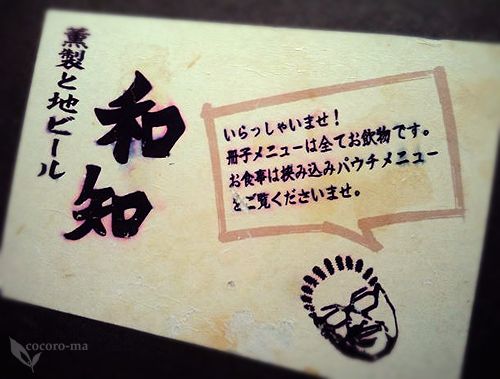 薫製と地ビール
和知
いらっしゃいませ！
冊子メニューは全てお飲物です。
お食事は挟み込みパウチメニュー
とご覧くださいませ。
cocoro-ma